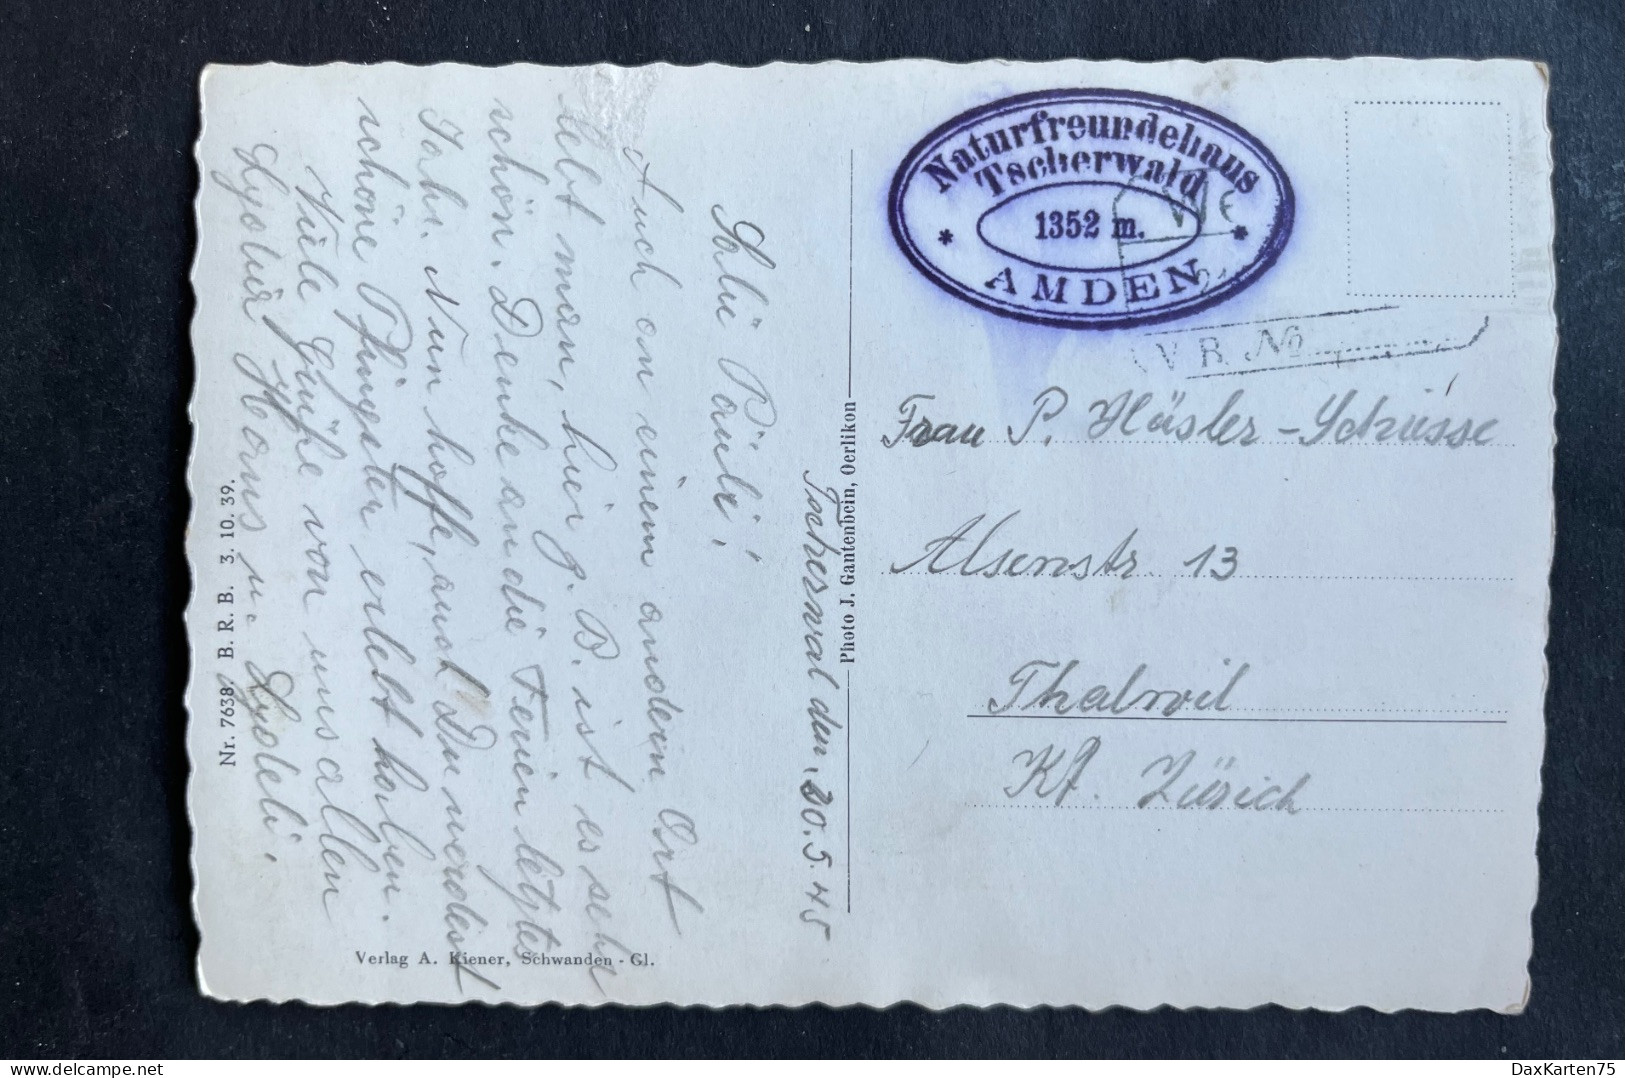 Naturfreundehaus
Tscherwald
1352 m.
AMDEN
V R No
Frau P. Häsler-Schüsse
Alsenstr 13
Thalwil
Kt. Zürich
Photo J. Gantenbein, Oerlikon
Tscherwal den 20.5.45
Salü Päuli!
Auch an einem andern Ort
lebt man, hier z. B. ist es sehr
schön. Denke an die Ferien letztes
Jahr. Nun hoffe, auch Du werdest
schöne Pfingsten erlebt haben.
Viele Grüße von uns allen
Hans u.
Verlag A. Kiener, Schwanden - Gl.
Nr. 7638 B. R. B. 3. 10. 39.
DaxKarten75